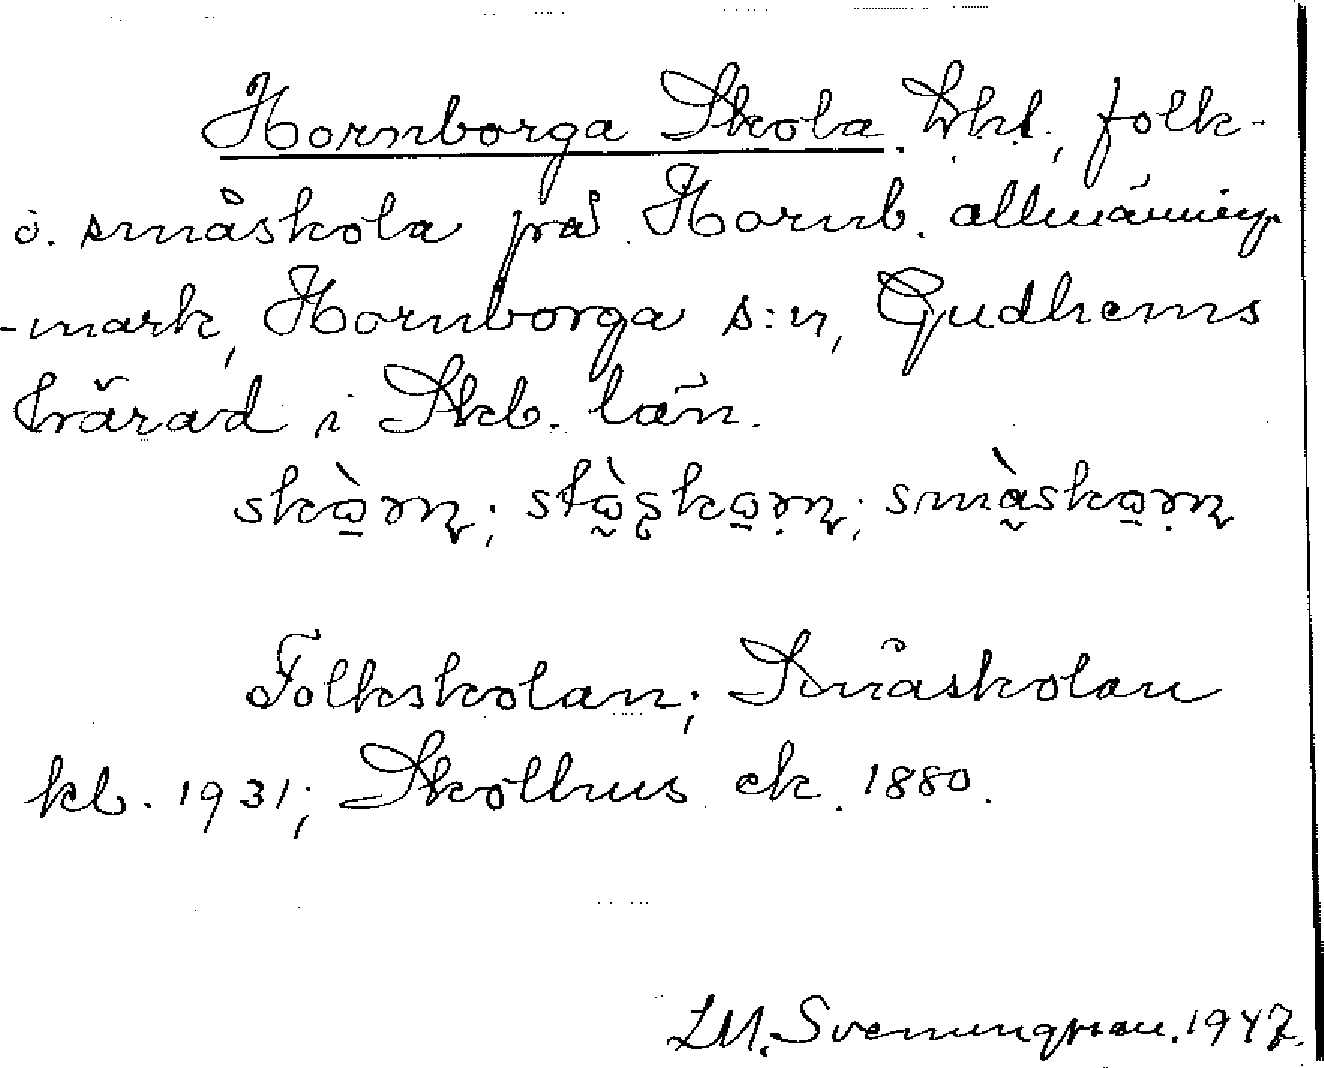 Hornborga Skola. Lht., folk-
o. småskola på Hornb. allmännings
-mark, Hornborga s:n, Gudhems
härad i Skb. län.
Folkskolan; Småskolan
kb. 1931; Skolhus ek. 1880.
LM. Svenungsson. 1947.